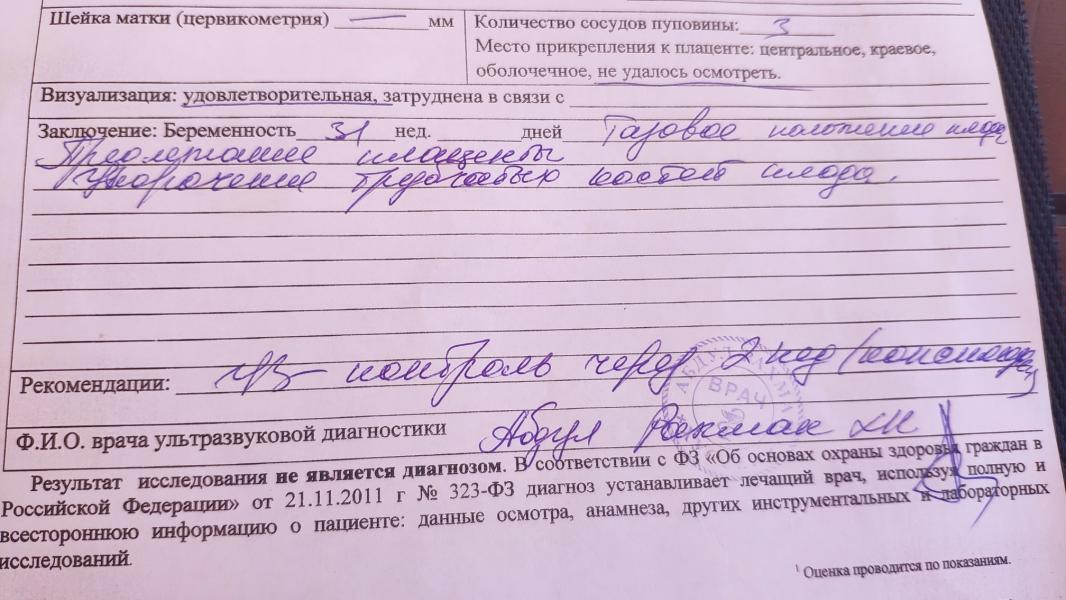 Шейка матки (цервикометрия) — мм
Количество сосудов пуповины: 3
Место прикрепления к плаценте: центральное, краевое,
оболочечное, не удалось осмотреть.
Визуализация: удовлетворительная, затруднена в связи с
Заключение: Беременность 31 нед. дней Тазовое положение плода
Предлежание плаценты
Укорочение трубчатых костей плода.
Рекомендации: УЗ- контроль через 2 нед
ВРАЧ
Ф.И.О. врача ультразвуковой диагностики Абдул Рахман
Результат исследования не является диагнозом. В соответствии с ФЗ «Об основах охраны здоровья граждан в
Российской Федерации» от 21.11.2011 г № 323-ФЗ диагноз устанавливает лечащий врач, используя полную и
всестороннюю информацию о пациенте: данные осмотра, анамнеза, других инструментальных и лабораторных
исследований.
¹ Оценка проводится по показаниям.